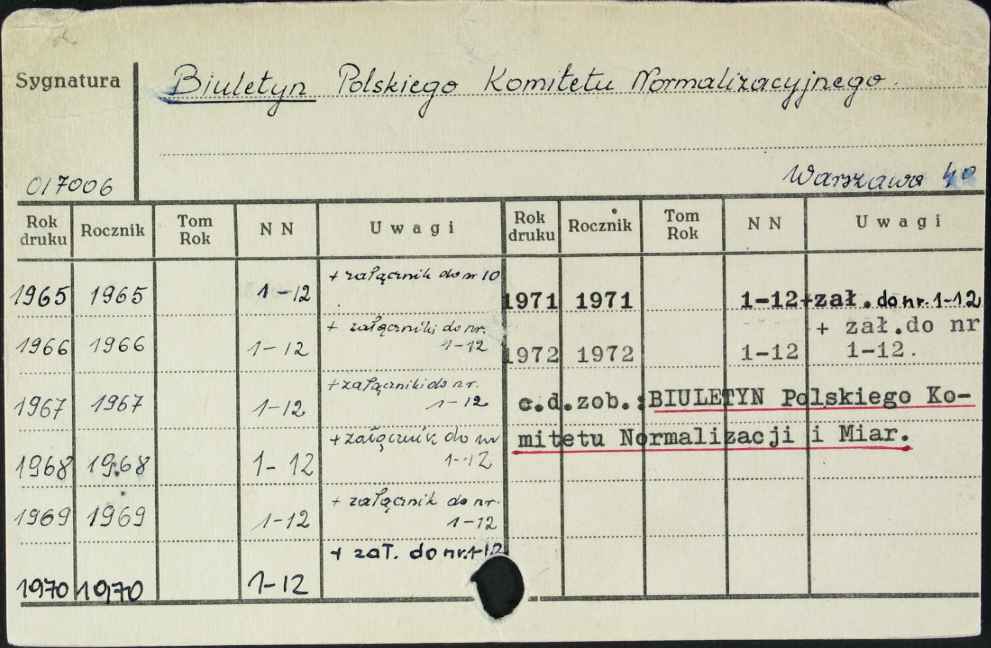 Sygnatura
Biuletyn Polskiego Komitetu Normalizacyjnego.
017006
Warszawa 40
Rok druku Rocznik Tom Rok N N Uwagi Rok druku Rocznik Tom Rok N N Uwagi
1965 1965 1-12 + załącznik do nr 10
1966 1966 1-12 + załączniki do nr. 1-12
1967 1967 1-12 + załączniki do nr. 1-12
1968 1968 1-12 + załącznik do nr 1-12
1969 1969 1-12 + załącznik do nr. 1-12
1970 1970 1-12 + zał. do nr. 1-12
1971 1971 1-12 +zał. do nr. 1-12
1972 1972 1-12 + zał.do nr 1-12.
c.d.zob.:BIULETYN Polskiego Ko-
mitetu Normalizacji i Miar.